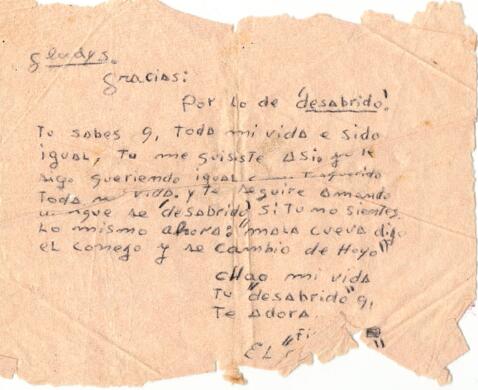 Gladys.
Gracias:
Por lo de "desabrido".
Tu sabes q, toda mi vida e sido
igual, Tu me guisiste asi, yo te
sigo gueriendo igual querido
Toda mi vida. y te seguire Amando
se "desabrido" si tu no sientes
Lo mismo ahora: "mala cueva dijo
el conego y se cambio de Hoyo"
chao mi vida
Tu "desabrido" q,
Te adora.
EL